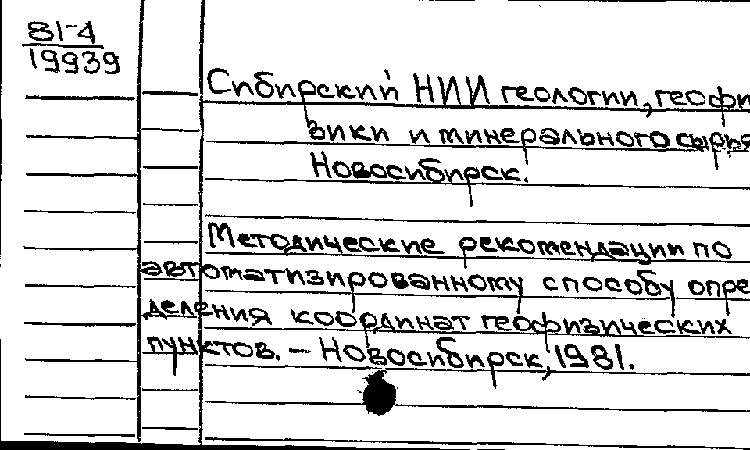 81-4
19939
Сибирский НИИ геологии, геофи
зики и минерального сырья
Новосибирск.
Методические рекомендации по
автоматизированному способу опре
деления координат геофизических
пунктов. – Новосибирск, 1981.